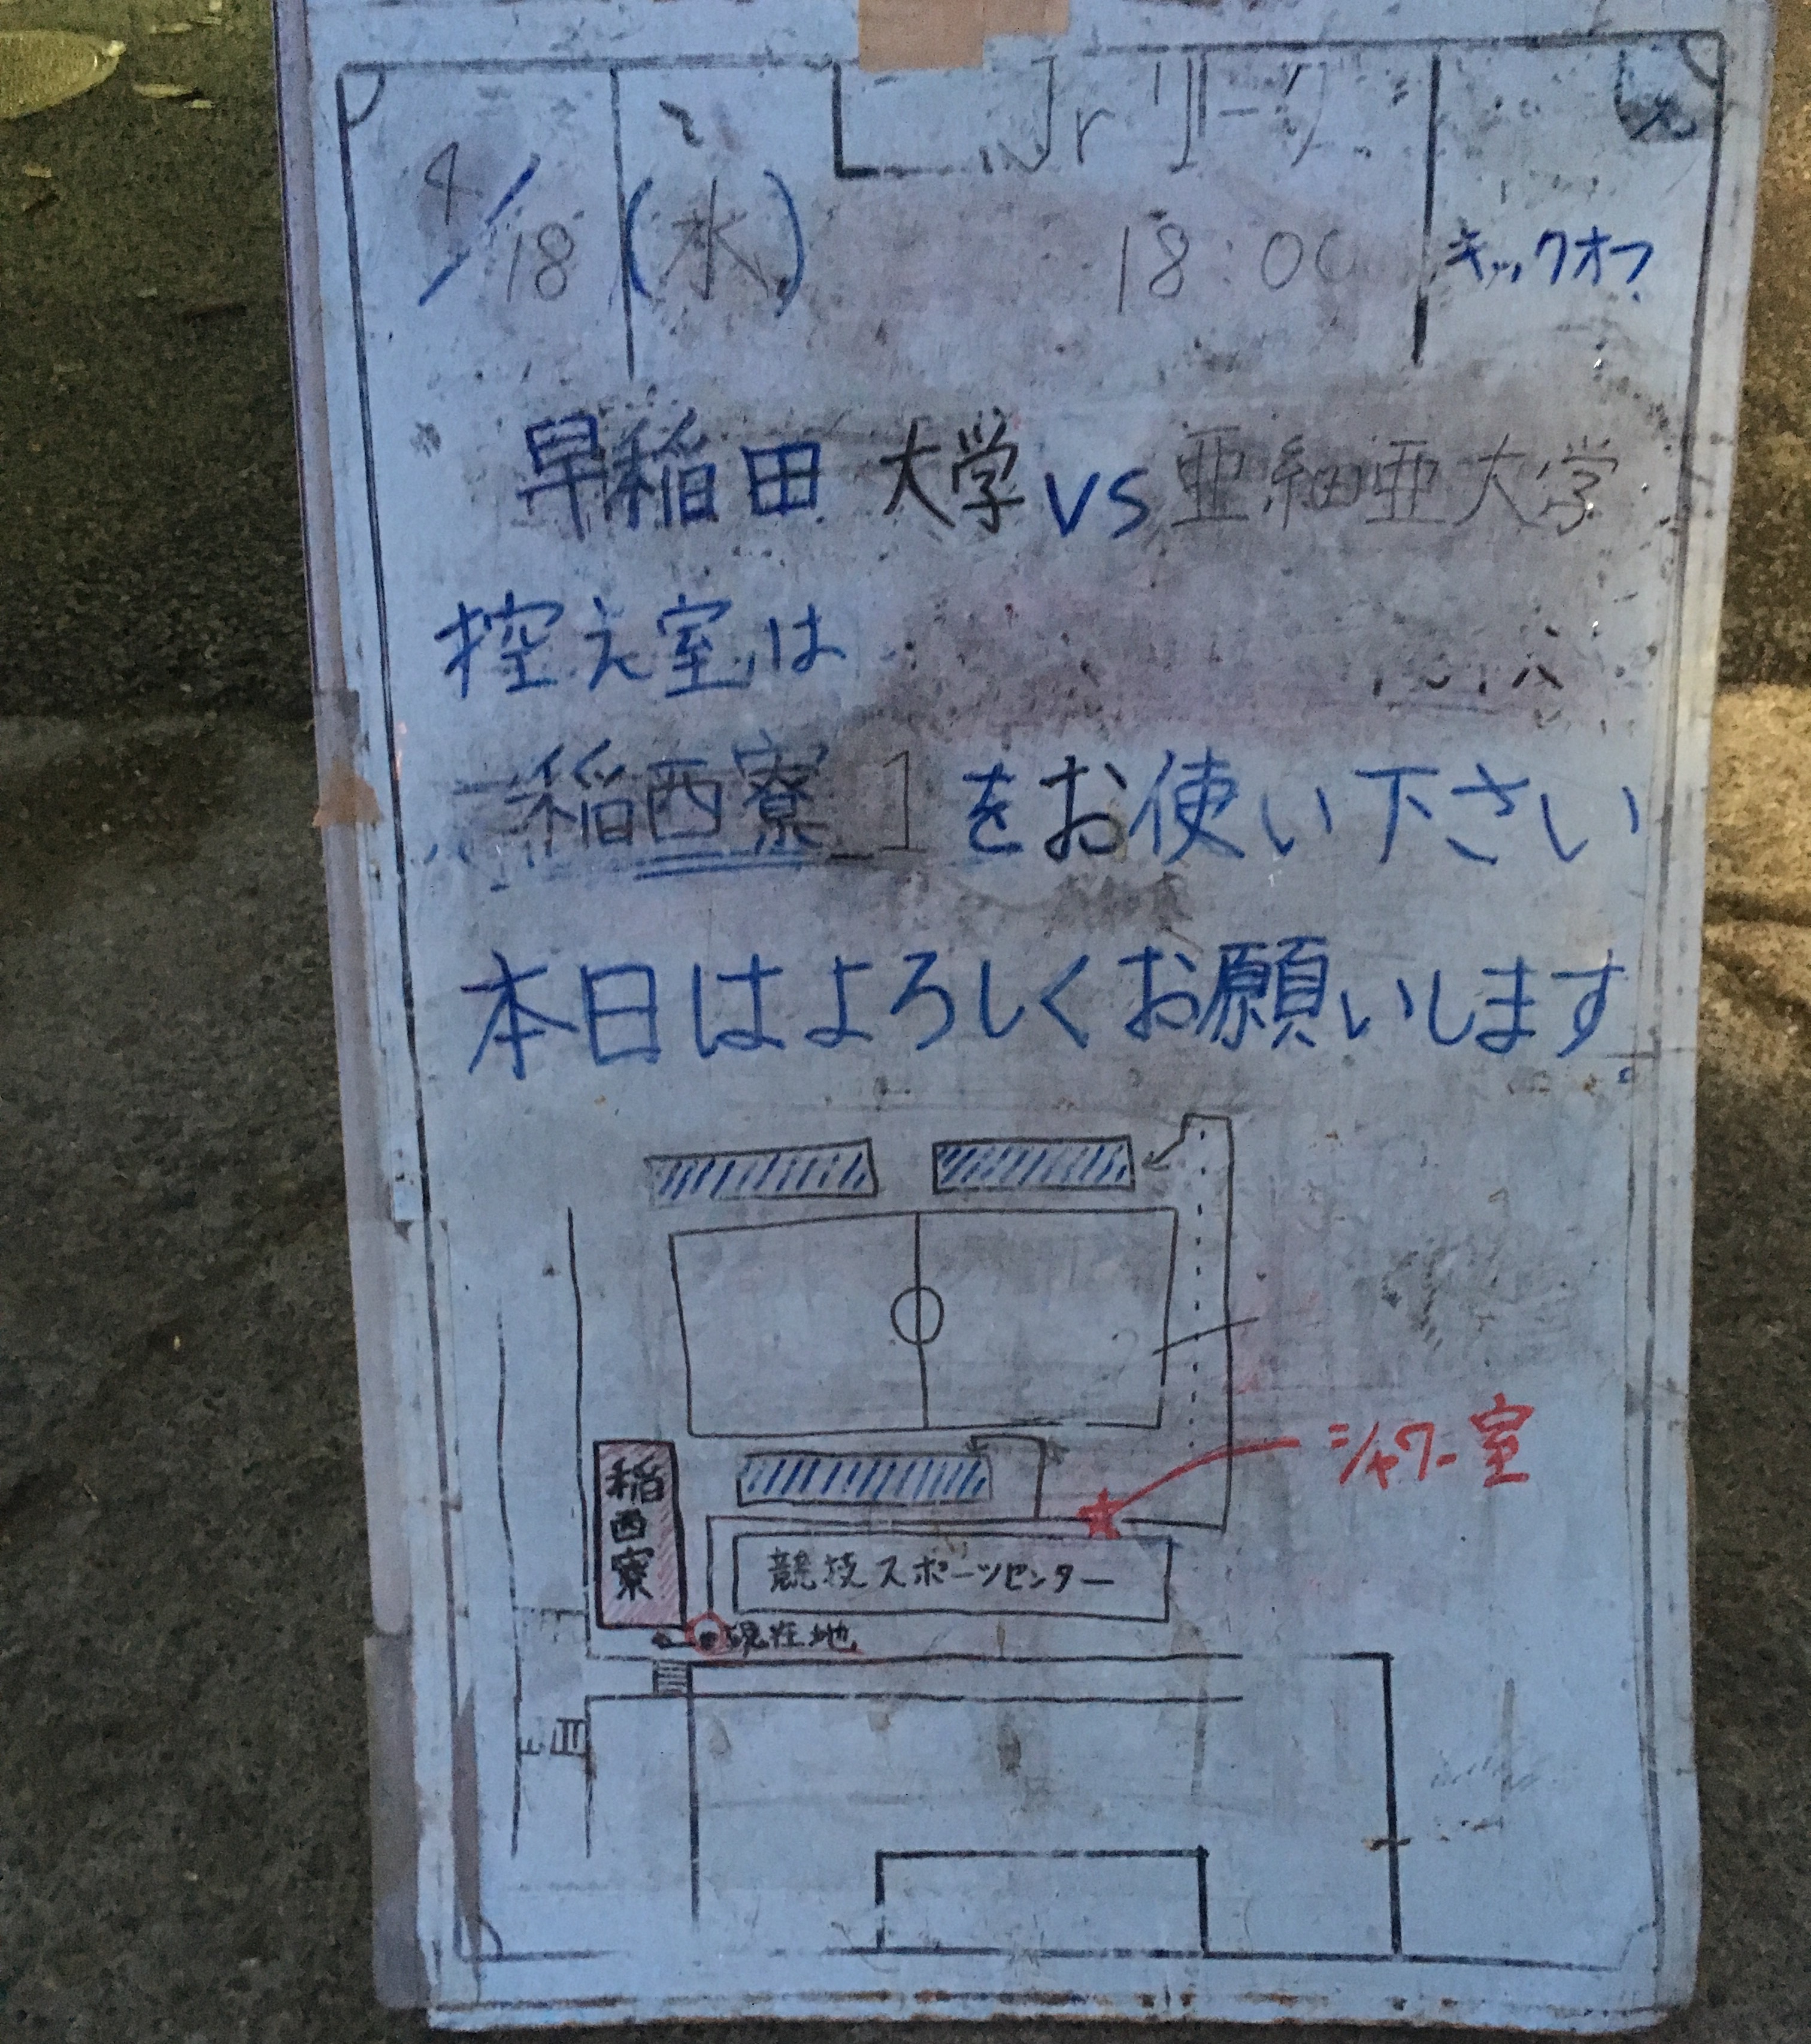 Jrリーグ
4/18(水) 18:00 キックオフ
早稲田大学 vs 亜細亜大学
控え室は
稲西寮 1 をお使い下さい
本日はよろしくお願いします
シャワー室
稲西寮
競技スポーツセンター
現在地